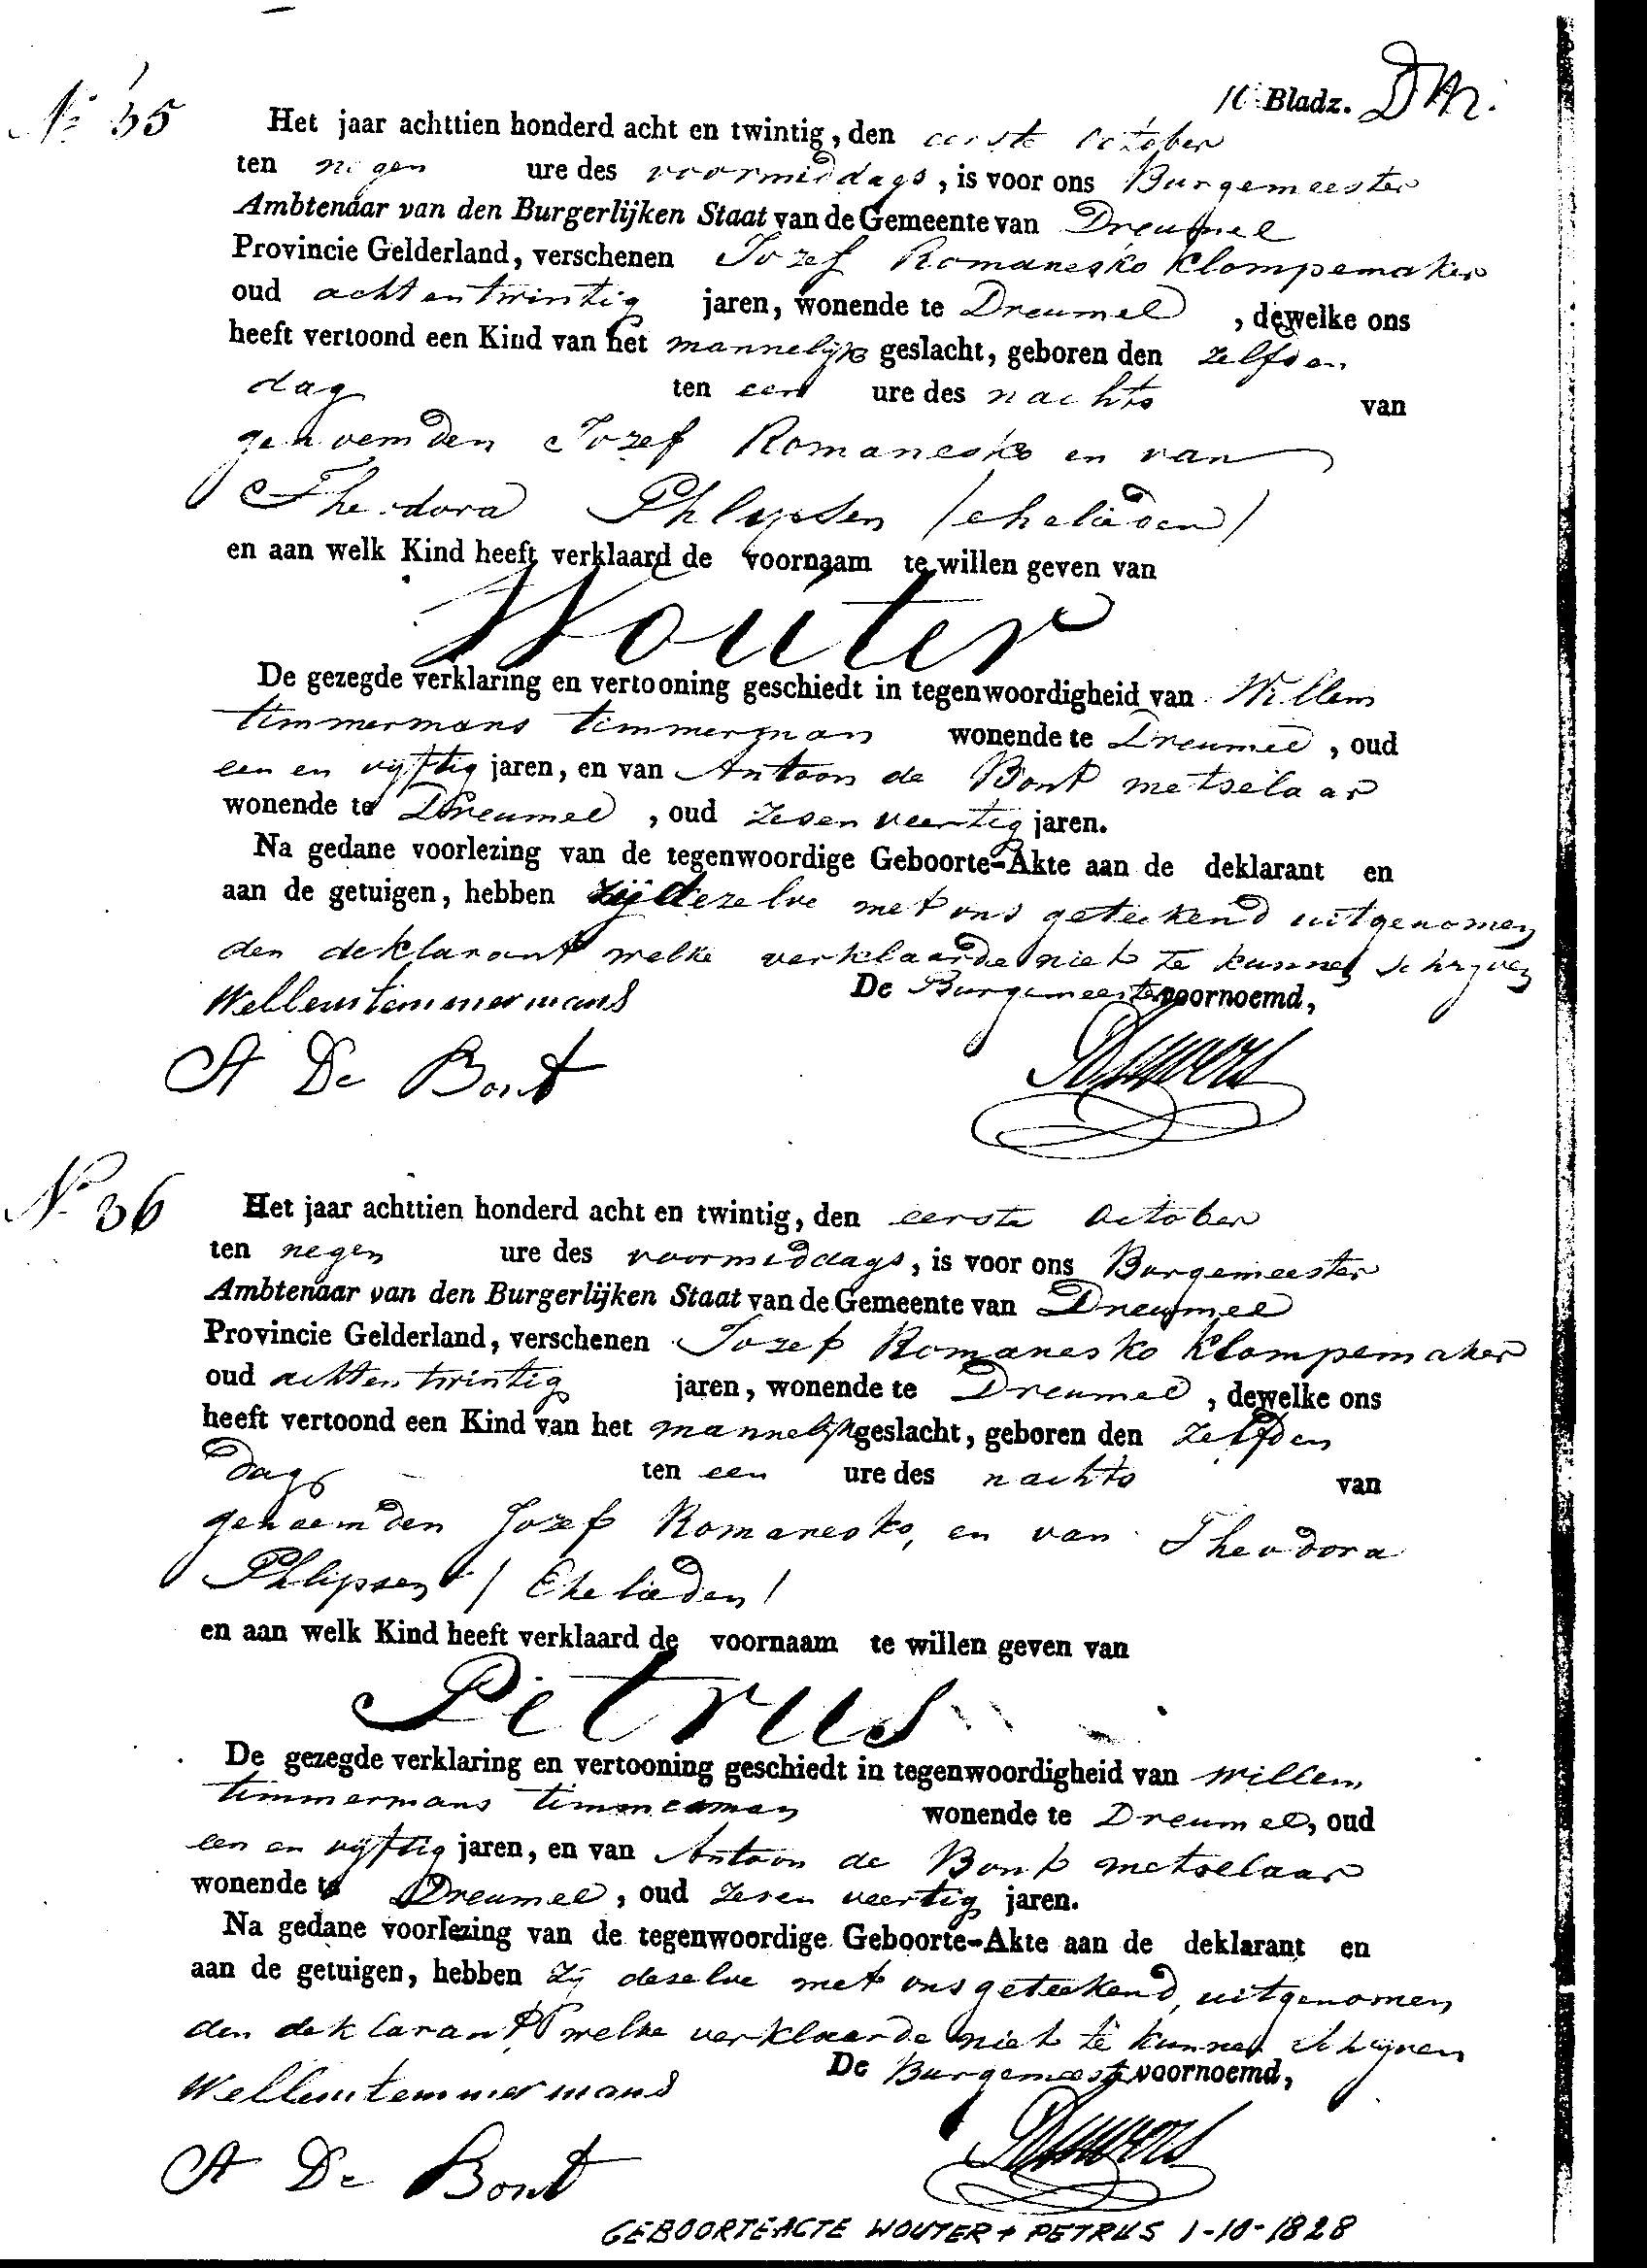 10 Bladz. DM.
No 35
Het jaar achttien honderd acht en twintig, den eerste october
ten negen ure des voormiddags, is voor ons Burgemeester
Ambtenaar van den Burgerlijken Staat van de Gemeente van Dreumel
Provincie Gelderland, verschenen Jozef Romanesko Klompemaker
oud acht en twintig jaren, wonende te Dreumel, dewelke ons
heeft vertoond een Kind van het mannelijk geslacht, geboren den zelfden
dag ten een ure des nachts van
genoemden Jozef Romanesko en van
Theodora Phlipsen /ehelieden/
en aan welk Kind heeft verklaard de voornaam te willen geven van
Wouter
De gezegde verklaring en vertooning geschiedt in tegenwoordigheid van Willem
timmermans timmerman wonende te Dreumel, oud
een en vyftig jaren, en van Antoon de Bont metselaar
wonende te Dreumel, oud zesen veertig jaren.
Na gedane voorlezing van de tegenwoordige Geboorte-Akte aan de deklarant en
aan de getuigen, hebben zij dezelve met ons geteekend uitgenomen
den deklarant welke verklaarde niet te kunnen schryven
Wellemtemmermans De Burgemeester voornoemd,
A De Bont
No 36
Het jaar achttien honderd acht en twintig, den eerste October
ten negen ure des voormiddags, is voor ons Burgemeester
Ambtenaar van den Burgerlijken Staat van de Gemeente van Dreumel
Provincie Gelderland, verschenen Jozef Romanesko Klompemaker
oud achten twintig jaren, wonende te Dreumel, dewelke ons
heeft vertoond een Kind van het mannelyk geslacht, geboren den zelfden
dags ten een ure des nachts van
genoemden Jozef Romanesko, en van Theodora
Phlipsen / Ehelieden /
en aan welk Kind heeft verklaard de voornaam te willen geven van
Petrus
De gezegde verklaring en vertooning geschiedt in tegenwoordigheid van Willem
timmermans timmerman wonende te Dreumel, oud
een en vyftig jaren, en van Antoon de Bont metselaar
wonende te Dreumel, oud zesen veertig jaren.
Na gedane voorlezing van de tegenwoordige Geboorte-Akte aan de deklarant en
aan de getuigen, hebben zy deselve met ons geteekend, uitgenomen
den deklarant welke verklaarde niet te kunnen schryven
Wellemtemmermans De Burgemeester voornoemd,
A De Bont
GEBOORTEACTE WOUTER + PETRUS 1-10-1828